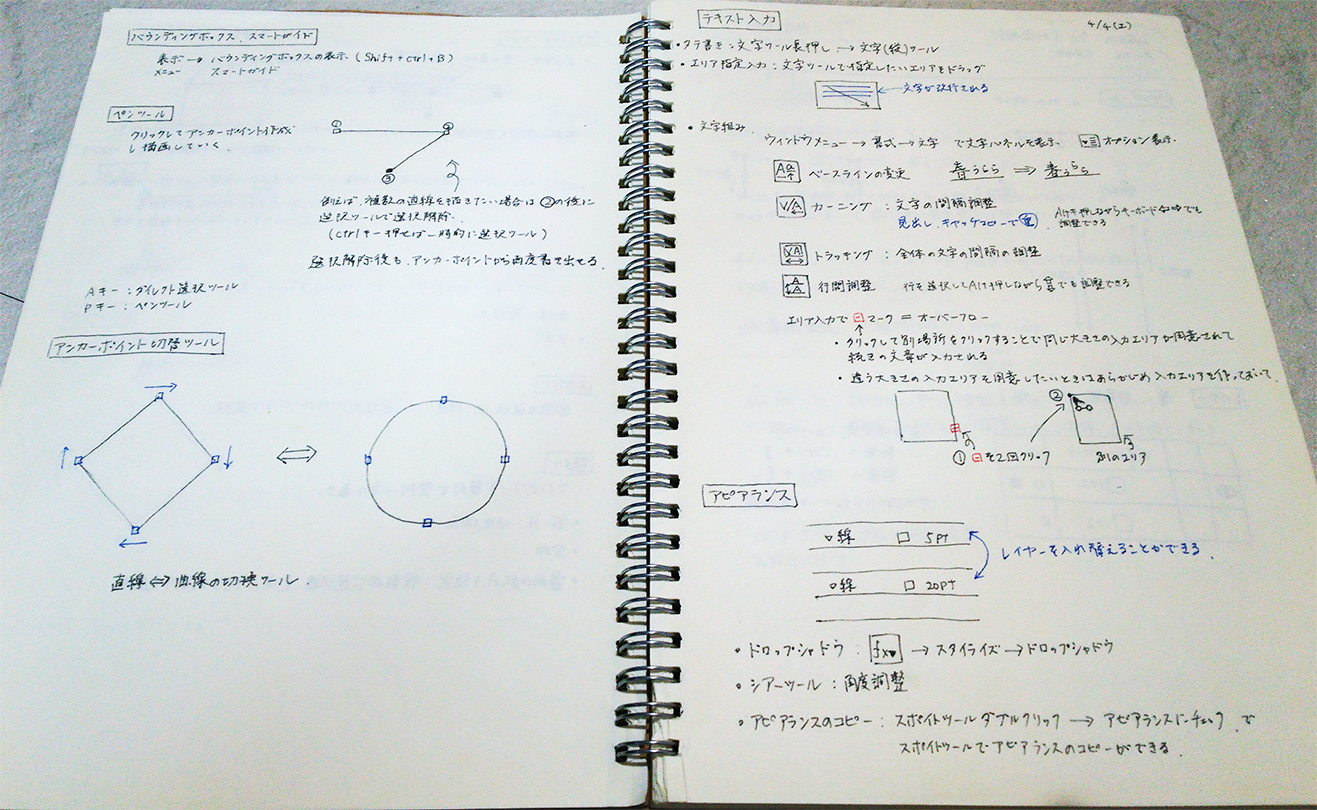 バウンディングボックス、スマートガイド
表示 → バウンディングボックスの表示 (Shift + Ctrl + B)
メニュー スマートガイド
ペンツール
クリックしてアンカーポイント作成
し描画していく
①
②
③
例えば、複数の直線を描きたい場合は②の後に
選択ツールで選択解除。
(Ctrlキー押せば一時的に選択ツール)
選択解除後も、アンカーポイントから再度書き出せる。
Aキー:ダイレクト選択ツール
Pキー:ペンツール
アンカーポイント切替ツール
直線⇔曲線の切換ツール.
テキスト入力
4/4(土)
・タテ書き:文字ツール長押し → 文字(縦)ツール
・エリア指定入力:文字ツールで指定したいエリアをドラッグ
文字が改行される
・文字組み.
ウィンドウメニュー → 書式 → 文字 で文字パネルを表示. オプション表示.
Aa ベースラインの変更 春うらら ⇒ 春うらら
V/A カーニング:文字の間隔調整
見出し、キャッチコピーで
Altキー押しながらキーボードでも
調整できる
VA トラッキング:全体の文字の間隔の調整
行間調整 行を選択してAlt押しながらでも調整できる
エリア入力で マーク = オーバーフロー
・クリックして別場所をクリックすることで同じ大きさの入力エリアが用意されて
続きの文章が入力される
・違う大きさの入力エリアを用意したいときはあらかじめ入力エリアを作っておいて、
②
① を2回クリック
別のエリア
アピアランス
線 □ 5pt
線 □ 20pt
レイヤーを入れ替えることができる.
・ドロップシャドウ: fx → スタイライズ → ドロップシャドウ
・シアーツール:角度調整
・アピアランスのコピー:スポイトツールダブルクリック → アピアランスにチェック で
スポイトツールでアピアランスのコピーができる.